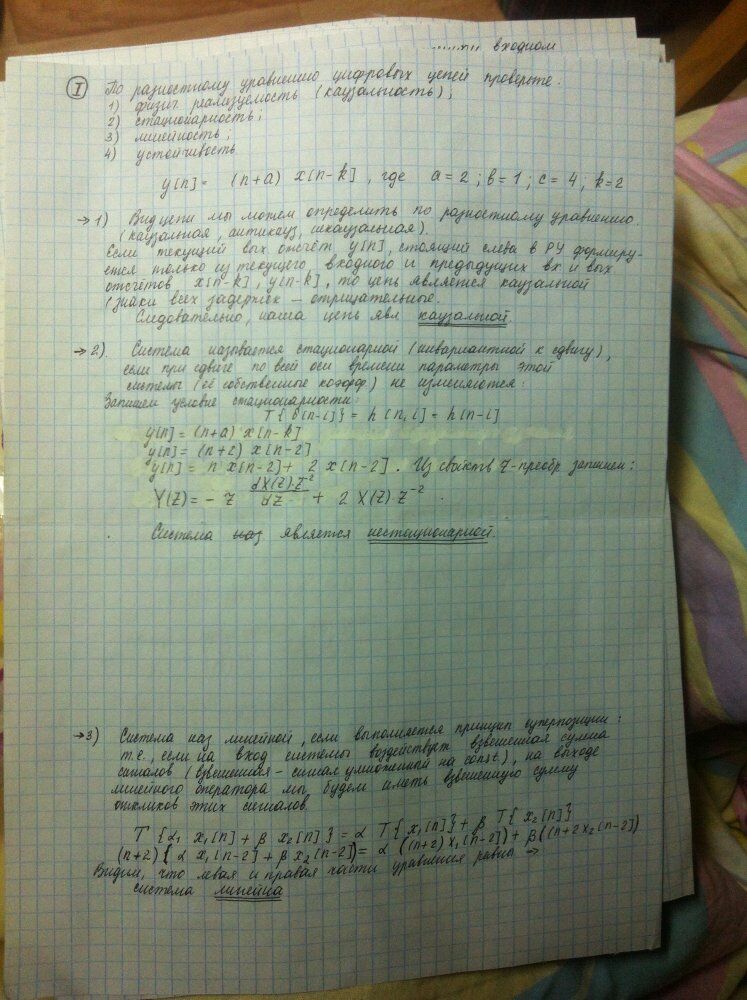 входном
I По разностному уравнению цифровых цепей проверьте:
1) физич реализуемость (каузальность);
2) стационарность;
3) линейность;
4) устойчивость
y[n] = (n+a) x[n-k], где a=2; b=1; c=4; k=2
→1) Вид цепи мы можем определить по разностному уравнению.
(каузальная, антикауз, некаузальная).
Если текущий вых отсчёт y[n], стоящий слева в РУ формиру-
ется только из текущего входного и предыдущих вх и вых
отсчётов x[n-k], y[n-k], то цепь является каузальной
(знаки всех задержек – отрицательные.
Следовательно, наша цепь явл каузальной
→2). Система называется стационарной (инвариантной к сдвигу),
если при сдвиге по всей оси времени параметры этой
системы (её собственные коэфф) не изменяются:
Запишем условие стационарности:
T{δ[n-i]} = h[n,i] = h[n-i]
y[n] = (n+a) x[n-k]
y[n] = (n+2) x[n-2]
y[n] = n x[n-2] + 2 x[n-2]. Из свойств Z-преобр запишем:
Y(Z) = - Z dX(Z)·Z^-2/dZ + 2 X(Z)·Z^-2.
Система наз является нестационарной.
→3) Система наз линейной, если выполняется принцип суперпозиции:
т.е., если на вход системы воздействует взвешенная сумма
сигналов (взвешенная – сигнал умноженный на const), на выходе
линейного оператора мы будем иметь взвешенную сумму
откликов этих сигналов.
T{α1 x1[n] + β x2[n]} = α T{x1[n]} + β T{x2[n]}
(n+2){α x1[n-2] + β x2[n-2]} = α((n+2) x1[n-2]) + β((n+2 x2[n-2])
Видим, что левая и правая части уравнения равны ⇒
система линейна